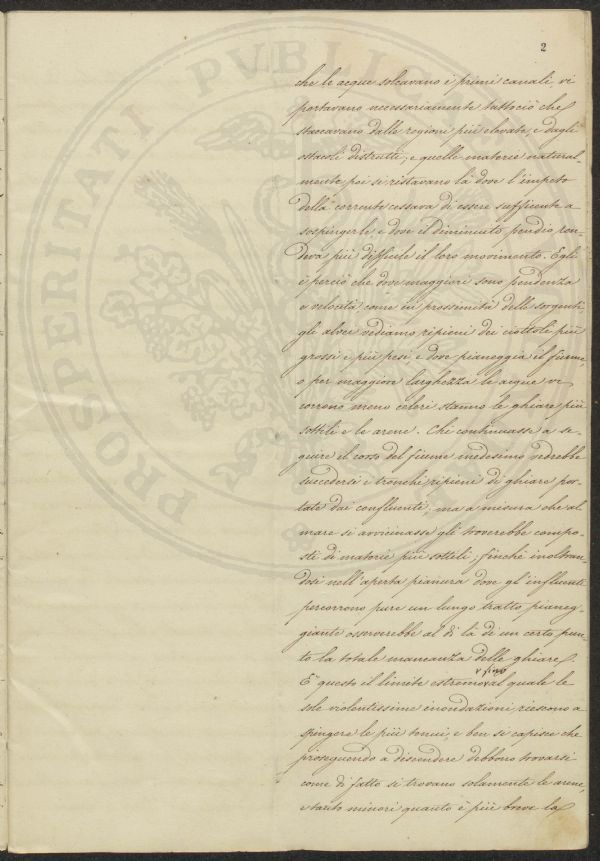 2
che le acque solcavano i primi canali, vi
portavano necessariamente tuttociò che
staccavano dalle regioni più elevate, e dagli
ostacoli distrutti, e quelle materie natural-
mente poi si ristavano là dove l'impeto
della corrente cessava di essere sufficiente a
sospingerle, e dove il diminuito pendio ren-
deva più difficile il loro movimento. Egli
è perciò che dove maggiori sono pendenza
e velocità come in prossimità delle sorgenti
gli alvei vediamo ripieni dei ciottoli più
grossi e più pesi, e dove pianeggia il fiume,
o per maggiore larghezza le acque vi
corrono meno celeri stanno le ghiare più
sottili e le arene. Chi continuasse a se-
guire il corso del fiume medesimo vedrebbe
succedersi i tronchi ripieni di ghiare por-
tate dai confluenti, ma a misura che al
mare si avvicinasse gli troverebbe compo-
sti di materie più sottili, finchè inoltran-
dosi nell'aperta pianura dove gl'influenti
percorrono pure un lungo tratto pianeg-
giante osserverebbe al di là di un certo pun-
to la totale mancanza delle ghiare.
È questo il limite estremo fino al quale le
sole violentissime inondazioni riescono a
spingere le più tenui, e ben si capisce che
proseguendo a discendere debbono trovarsi
come di fatto si trovano solamente le arene,
e tanto minori quanto è più breve la
PROSPERITATI PVBLICAE